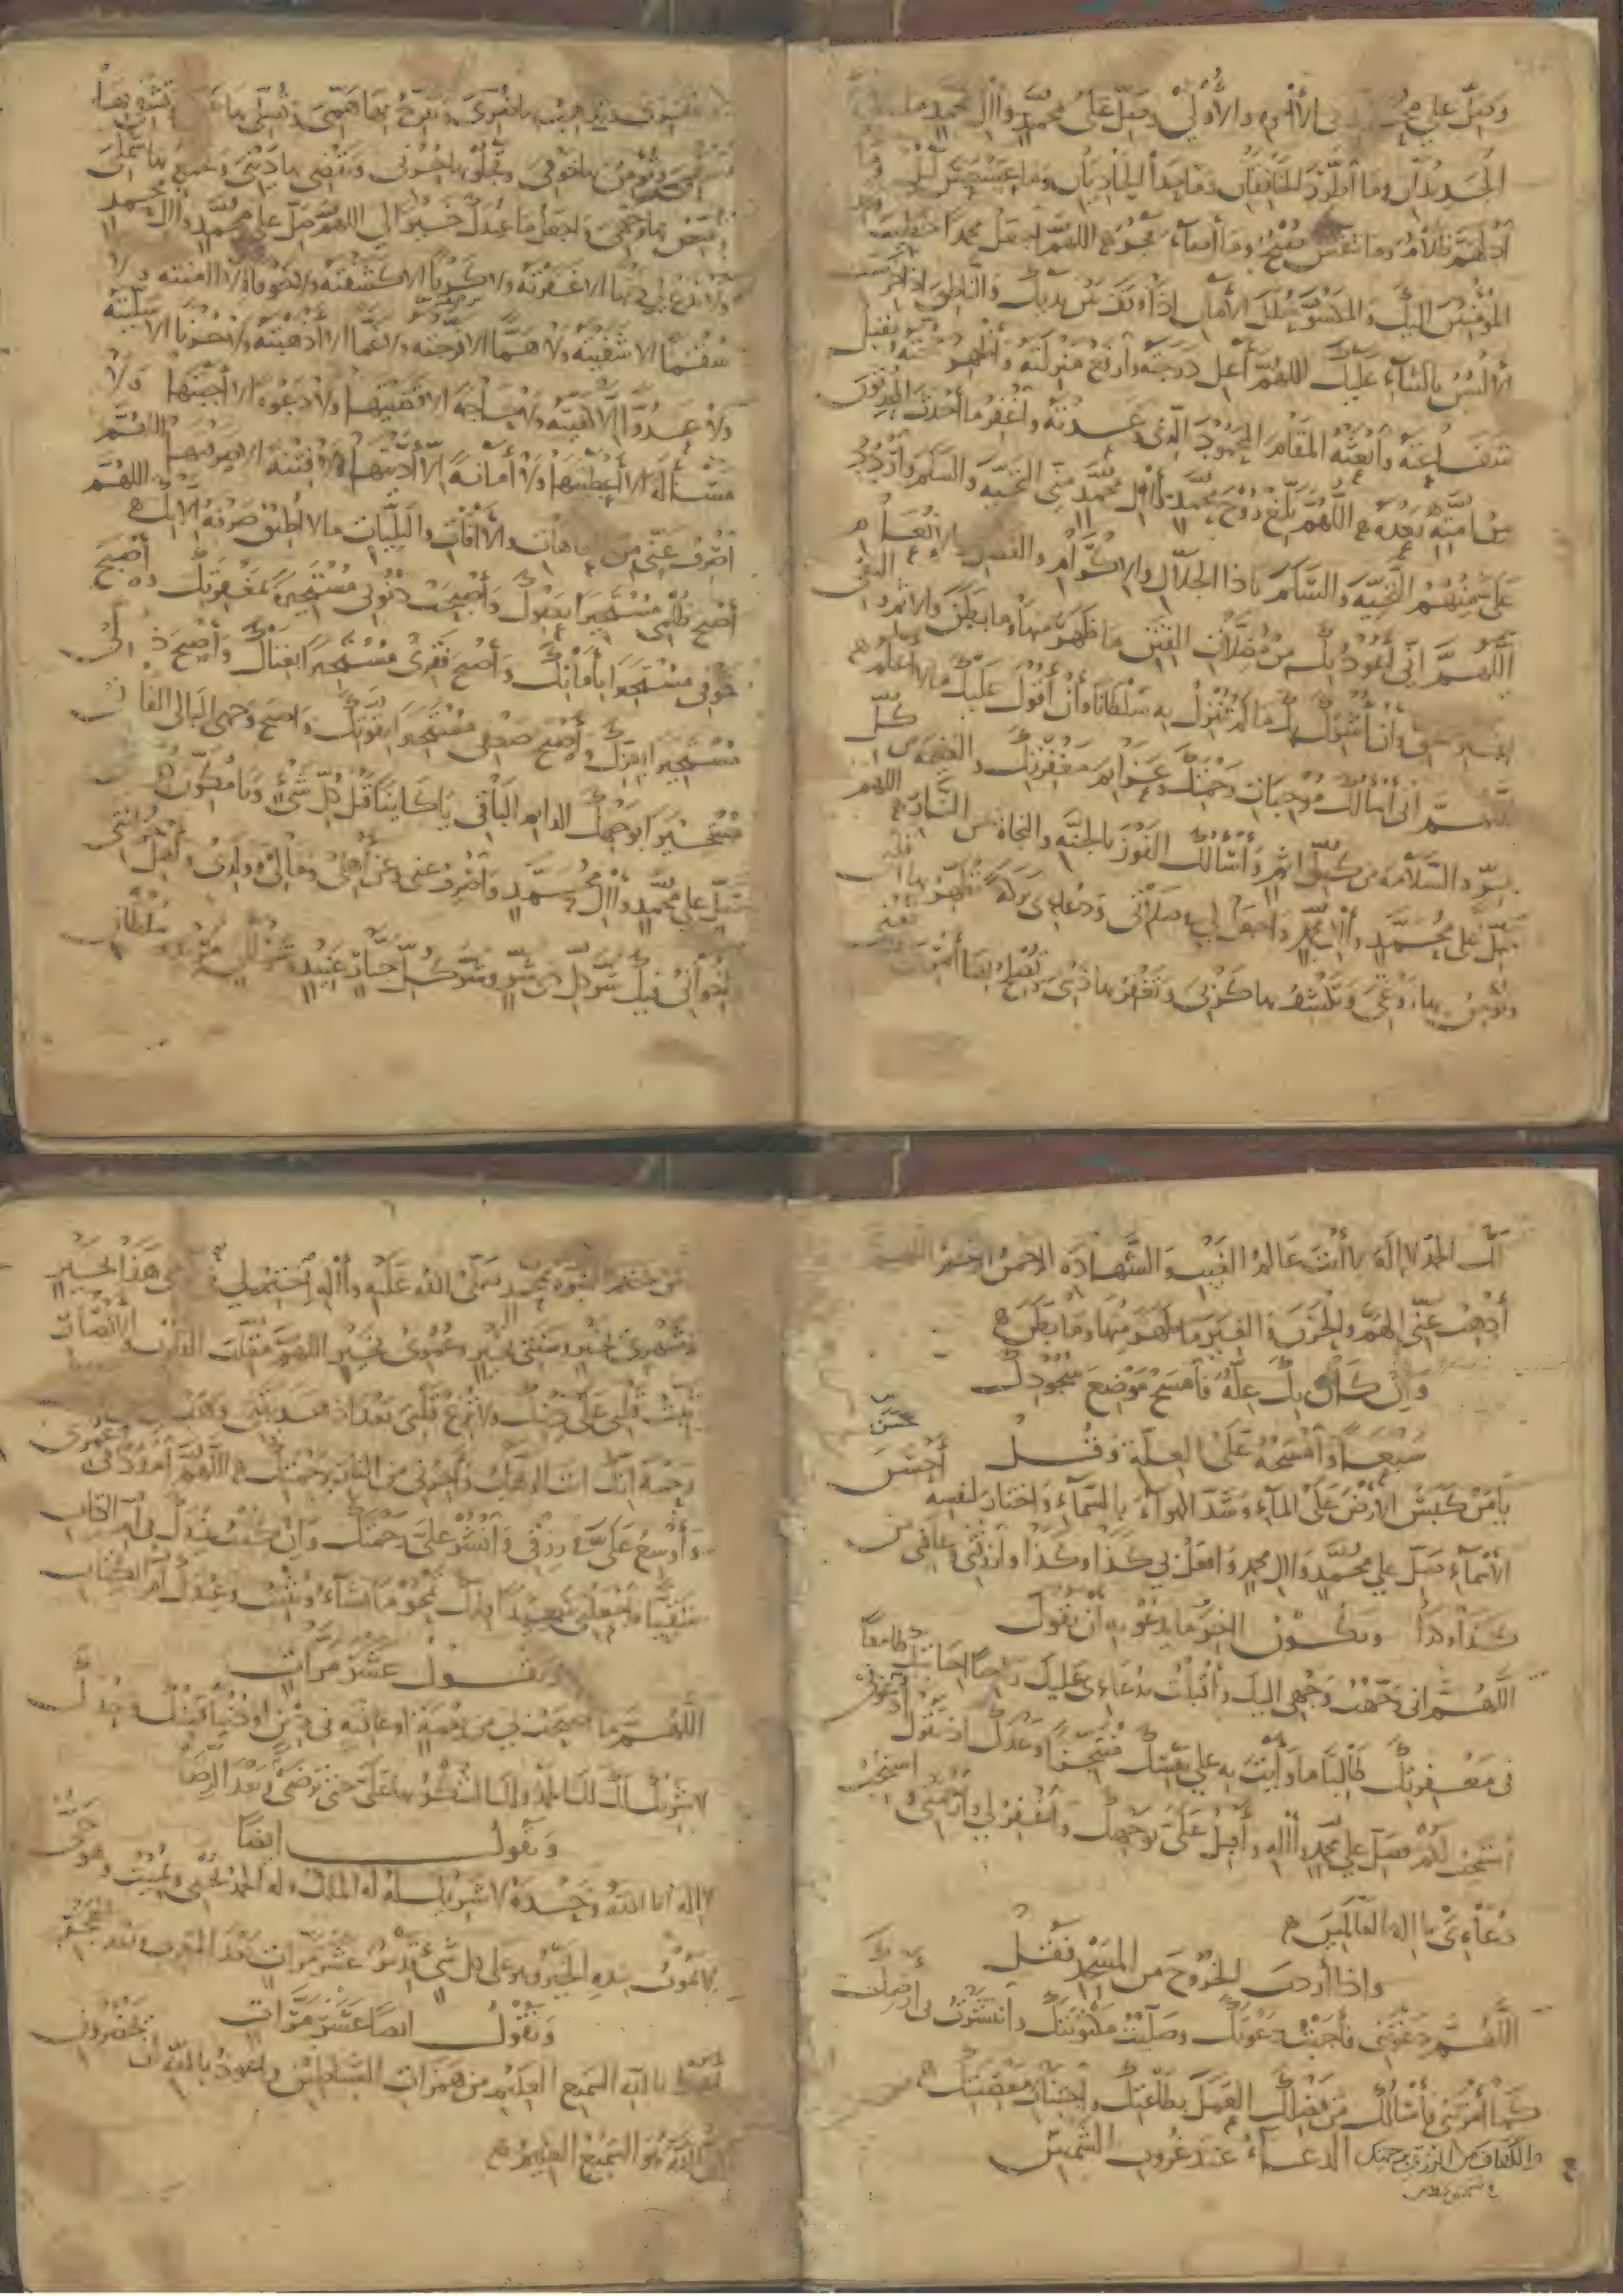 وصل على محمد في الأخرين والأولين وصل على محمد وآل محمد ما
الجديدان وما اطرد الخافقان وما حدا الحاديان وما عسعس ليل وما
ادلهم ظلام وما تنفس صبح وما أضاء فجر اللهم اجعل محمدا خطيب وفد
المؤمنين إليك والمكسو حلل الأمان إذا وقف بين يديك والناطق إذا خرست
الألسن بالثناء عليك اللهم أعل درجته وارفع منزلته وأظهر حجته وتقبل
شفاعته وابعثه المقام المحمود الذي وعدته واغفر ما أحدث المحدثون
من امته بعده اللهم بلغ روح محمد وآل محمد مني التحية والسلم واردد
علي منهم التحية والسلم يا ذا الجلال والاكرام والفضل والانعام
اللهم إني أعوذ بك من مضلات الفتن ما ظهر منها وما بطن والاثم والبغي
بغير حق وأن أشرك بك ما لم تنزل به سلطانا وأن أقول عليك ما لا أعلم
اللهم إني أسألك موجبات رحمتك وعزائم مغفرتك والغنيمة من كل
بر والسلامة من كل اثم وأسألك الفوز بالجنة والنجاة من النار اللهم
صل على محمد وآل محمد واجعل لي في صلاتي ودعاءي بركة تطهر بها قلبي
وتؤمن بها روعتي وتكشف بها كربي وتغفر بها ذنبي وتصلح بها أمري وتغني
بها فقري وتذهب بها ضري وتفرج بها همي وتسلي بها غمي وتشفي بها
سقمي وتؤمن بها خوفي وتجلو بها حزني وتقضي بها ديني وتجمع بها شملي
وتبيض بها وجهي واجعل ما عندك خيرا لي اللهم صل على محمد وآل محمد
ولا تدع لي ذنبا الا غفرته ولا كربا الا كشفته ولا خوفا الا امنته ولا
سقما الا شفيته ولا هما الا فرجته ولا غما الا أذهبته ولا حزنا الا سليته
ولا عدوا إلا كفيته ولا حاجة الا قضيتها ولا دعوة الا أجبتها ولا
مسألة الا أعطيتها ولا أمانة إلا أديتها ولا فتنة الا صرفتها اللهم
اصرف عني من العاهات والآفات والبليات ما لا أطيق صرفه إلا بك اللهم
أصبح ظلمي مستجيرا بعفوك وأصبحت ذنوبي مستجيرة بمغفرتك وأصبح
خوفي مستجيرا بأمانك وأصبح فقري مستجيرا بغناك وأصبح ذلي
مستجيرا بعزك وأصبح ضعفي مستجيرا بقوتك وأصبح وجهي البالي الفاني
مستجيرا بوجهك الدايم الباقي يا كاينا قبل كل شيء ويا مكون
صل على محمد وآل محمد واصرف عني وعن أهلي ومالي وولدي وأهل حزانتي
واخواني فيك شر كل ذي شر وشر كل جبار عنيد وشيطان مريد وسلطان
لك الحمد لا إله إلا أنت عالم الغيب والشهادة الرحمن الرحيم اللهم
أذهب عني الهم والحزن والغير ما ظهر منها وما بطن
وان كان بك علة فامسح موضع سجودك
سبعا وامسحه على العلة وقل
يا من كبس الأرض على الماء وسد الهواء بالسماء واختار لنفسه أحسن
الأسماء صل على محمد وال محمد وافعل بي كذا وكذا وارزقني وعافني من
كذا وكذا ويكون اخر ما يدعو به أن يقول
اللهم اني وجهت وجهي إليك وأقبلت بدعاءي عليك راجيا اجابتك طامعا
في مغفرتك طالبا ما وأيت به على نفسك متنجزا وعدك اذ تقول ادعوني
أستجب لكم فصل على محمد وآله وأقبل علي بوجهك واغفر لي وارحمني واستجب
دعاءي يا اله العالمين
واذا أردت الخروج من المسجد فقل
اللهم دعوتني فأجبت دعوتك وصليت مكتوبتك وانتشرت في ارضك
كما أمرتني فأسألك من فضلك العمل بطاعتك واجتناب معصيتك
والكفاف من الرزق برحمتك الدعاء عند غروب الشمس
من ختم النبوة بمحمد صلى الله عليه وآله اختم لي في يومي هذا بخير
وشهري بخير وسنتي بخير وعمري بخير اللهم مقلب القلوب والأبصار
ثبت قلبي على دينك ولا تزغ قلبي بعد اذ هديتني وهب لي من لدنك
رحمة انك انت الوهاب وأجرني من النار برحمتك اللهم امدد لي في عمري
وأوسع علي في رزقي وانشر علي رحمتك وان كنت عندك في أم الكتاب
شقيا فاجعلني سعيدا فإنك تمحو ما تشاء وتثبت وعندك أم الكتاب
وتقول عشر مرات
اللهم ما أصبحت بي من نعمة أو عافية في دين أو دنيا فمنك وحدك
لا شريك لك لك الحمد ولك الشكر بها علي حتى ترضى وبعد الرضا
وتقول ايضا
لا اله الا الله وحده لا شريك له له الملك وله الحمد يحيي ويميت وهو حي
لا يموت بيده الخير وهو على كل شيء قدير عشر مرات بعد المغرب وبعد الفجر
وتقول ايضا عشر مرات
أعوذ بالله السميع العليم من همزات الشياطين وأعوذ بالله أن يحضرون
ان الله هو السميع العليم